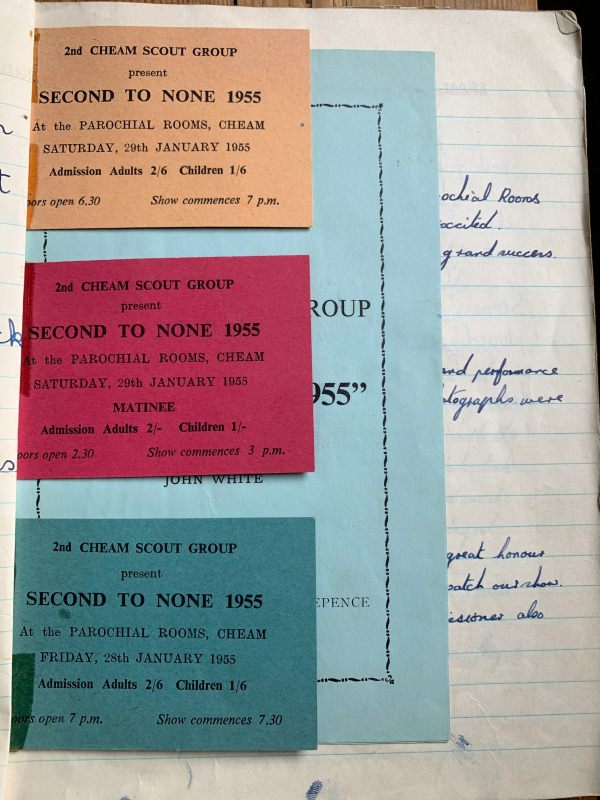 2nd CHEAM SCOUT GROUP
present
SECOND TO NONE 1955
At the PAROCHIAL ROOMS, CHEAM
SATURDAY, 29th JANUARY 1955
Admission Adults 2/6 Children 1/6
oors open 6.30 Show commences 7 p.m.
2nd CHEAM SCOUT GROUP
present
SECOND TO NONE 1955
At the PAROCHIAL ROOMS, CHEAM
SATURDAY, 29th JANUARY 1955
MATINEE
Admission Adults 2/- Children 1/-
oors open 2.30 Show commences 3 p.m.
2nd CHEAM SCOUT GROUP
present
SECOND TO NONE 1955
At the PAROCHIAL ROOMS, CHEAM
FRIDAY, 28th JANUARY 1955
Admission Adults 2/6 Children 1/6
oors open 7 p.m. Show commences 7.30
ROUP
955”
JOHN WHITE
EPENCE
ochial Rooms
grand success.
and performance
tographs were
great honour
our show.
also